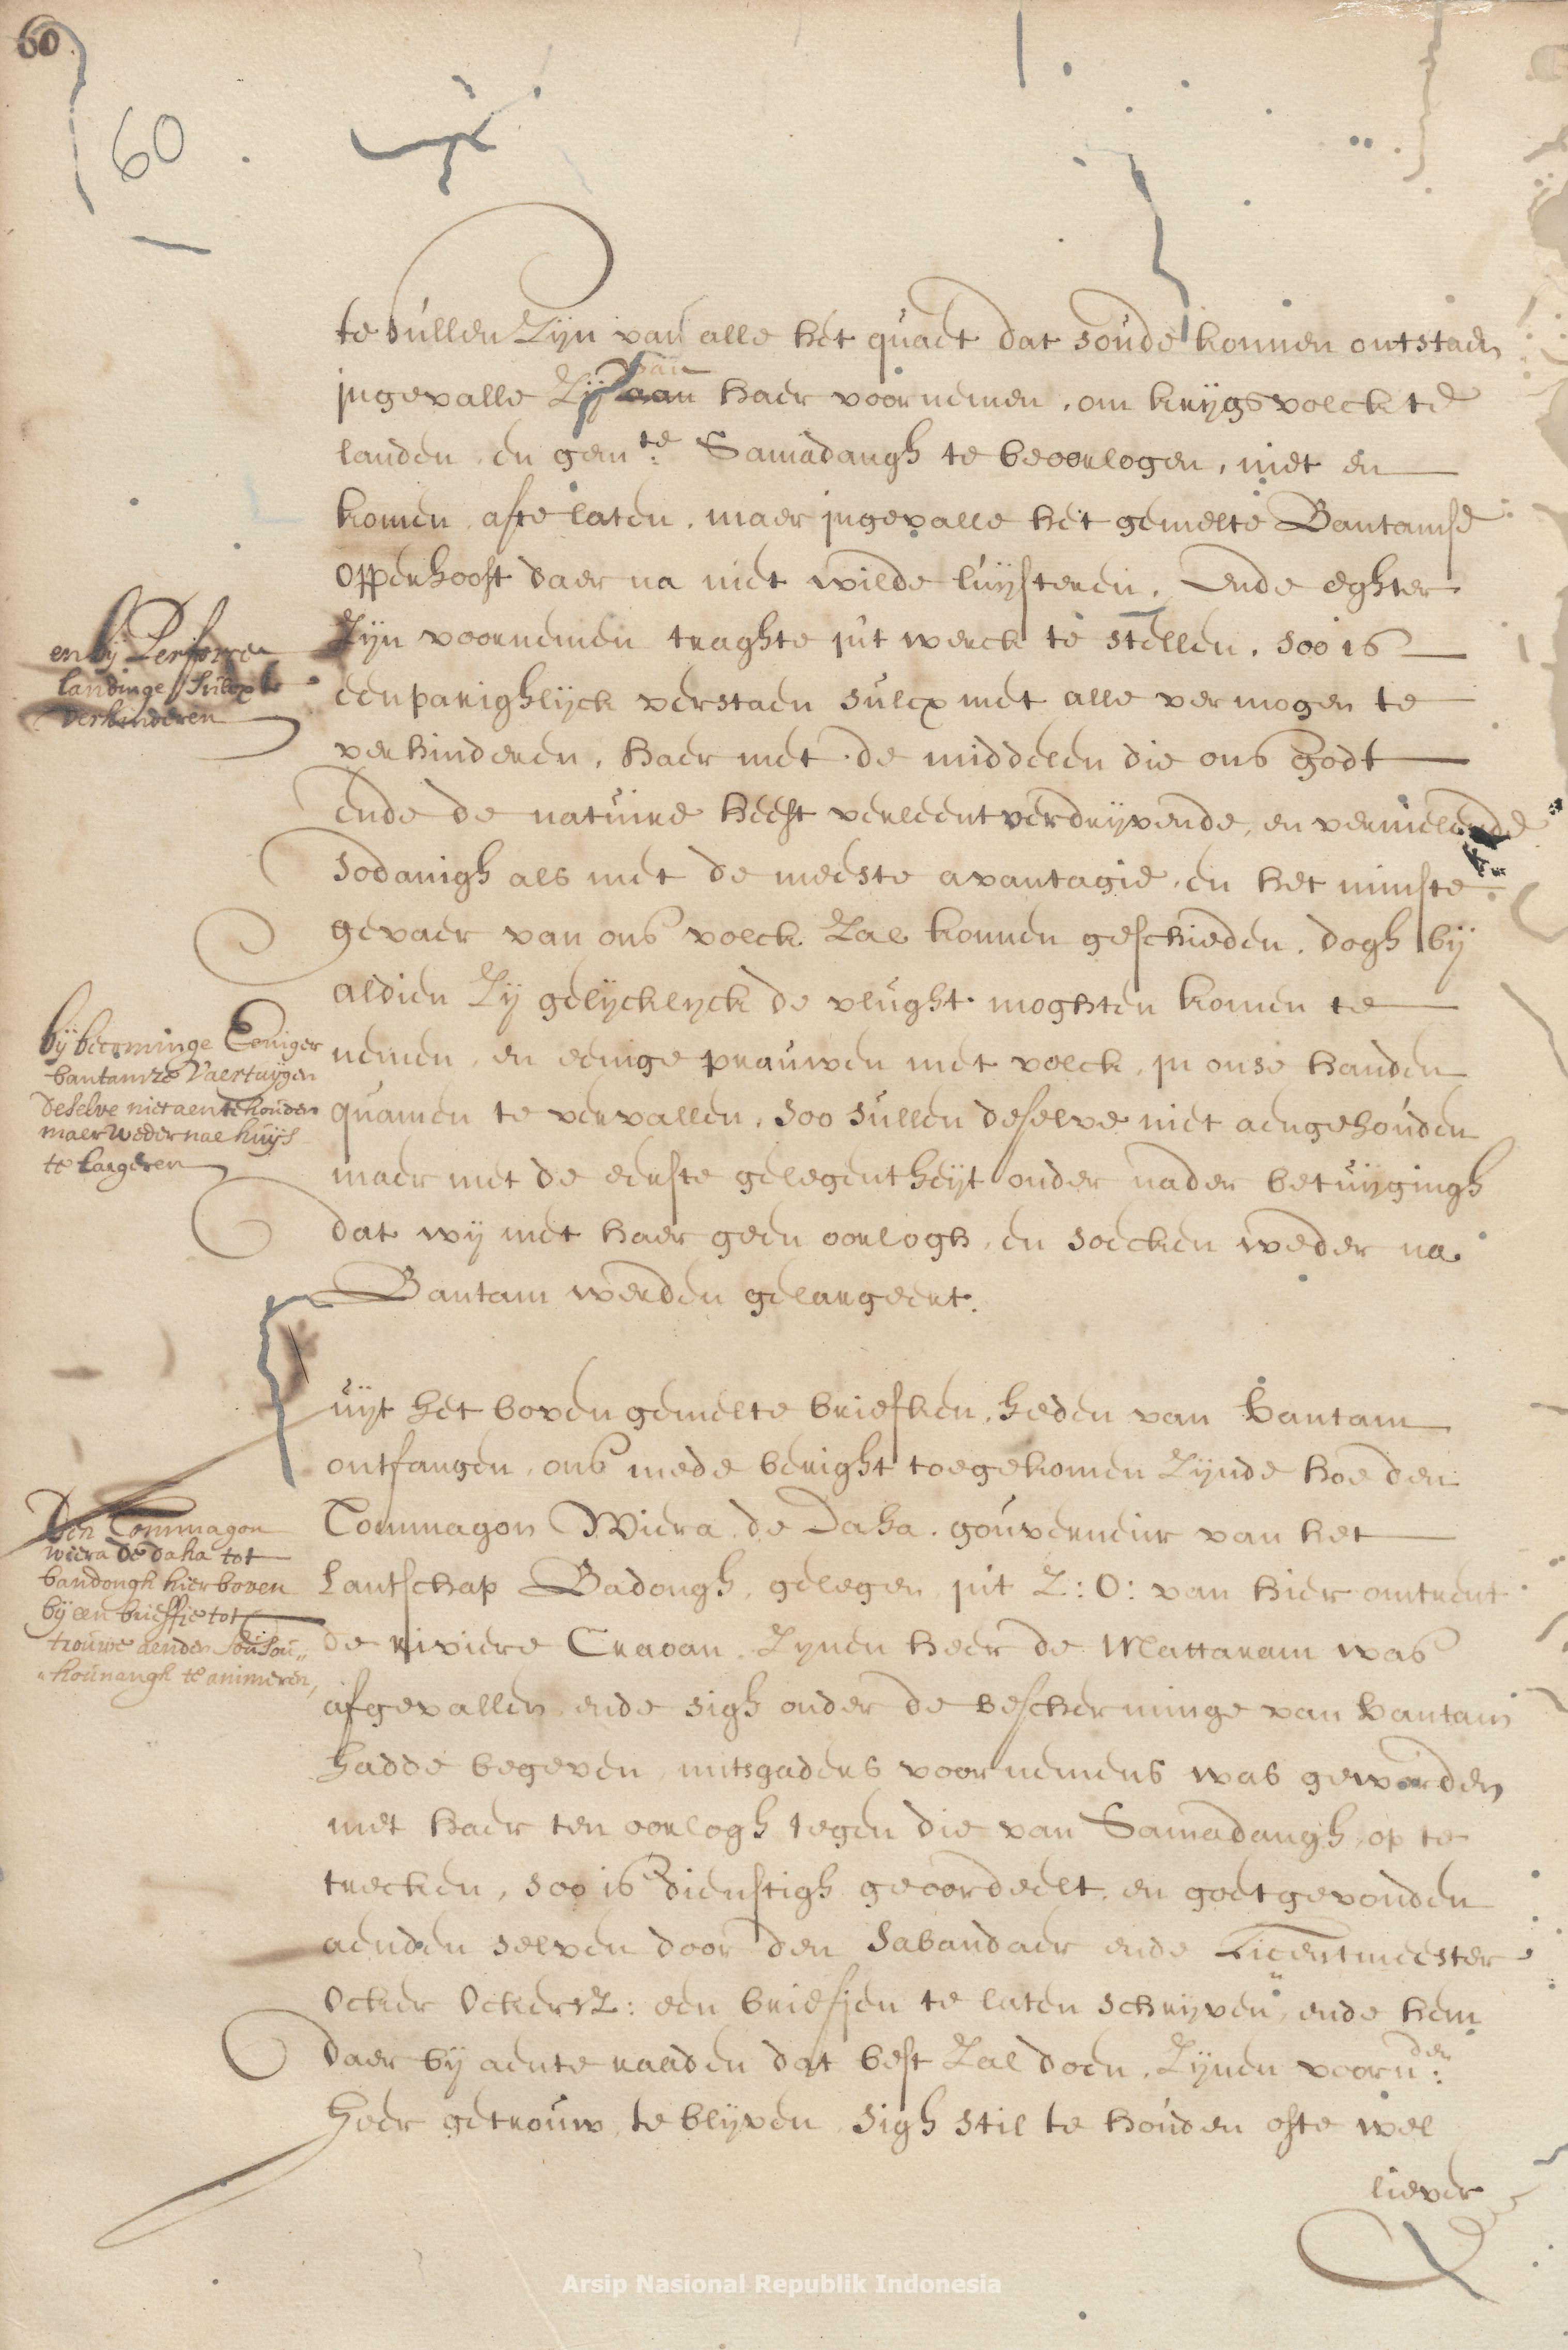 60
60
te sullen zyn van alle het quaet dat soude konnen ontstaen
van
ingevalle zij haer voornemen, om krygsvolck te
landen, en gem:te Samadangh te beoorlogen, niet en
komen afte laten, maer ingevalle het gemelte Bantamse
opperhooft daer na niet wilde luysteren, ende eghter
zyn voornemen traghte int werck te stellen, soo is
eenparighlyck verstaen sulcx met alle vermogen te
verhinderen, haer met de middelen die ons godt
ende de natuire heeft verleent verdryvende, en vernielende
sodanigh als met de meeste avantagie, en het minste
gevaer van ons volck zal konnen geschieden, dogh bij
aldien zy gelycklyck de vlught moghten komen te
nemen, en eenige prauwen met volck, in onse handen
quamen te vervallen, soo sullen deselve niet aengehouden
maer met de eerste gelegentheyt onder nader betuygingh
dat wij met haer geen oorlogh, en soecken weder na
Bantam werden gelargeert.
en bij Perforce
landinge sulcx te
verhinderen
bij becominge Eeniger
bantamze Vaertuijgen
deselve niet aen te houden
maer weder nae huijs
te largeren
uijt het boven gemelte briefken, heden van Bantam
ontfangen, ons mede beright toegekomen zynde hoe den
Tommagon Wiera de Daha, gouverneur van het
Lantschap Badongh, gelegen int Z:O: van hier omtrent
de riviere Craoan, zynen heer de Mattaram was
afgevallen, ende sigh onder de bescherminge van Bantam
hadde begeven, mitsgaders voornemens was geworden
met haer ten oorlogh tegen die van Samadangh, op te
trecken, soo is dienstigh geoordeelt, en goetgevonden
aenden selven door den Sabandaer ende Licentmeester
Ocker Ockersz: een briefjen te laten schryven, ende hem
daer bij aente raaden dat best zal doen, zijnen voorn:den
heer getrouw te blijven, sigh stil te houden ofte wel
liever
Den Tommagon
wiera de daha tot
bandongh hier boven
bij een brieffje tot
trouwe aenden Sousou„
„hounangh te animeren,
Arsip Nasional Republik Indonesia